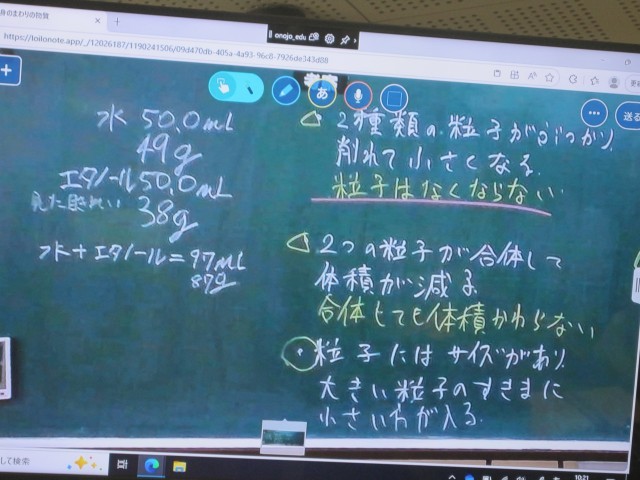 身のまわりの物質
https://loilonote.app/_/12026187/1190241506/09d470db-405a-4a93-96c0-7926de343d88
onojo_edu
あ
送る
水 50.0mL
49g
エタノール50.0mL
38g
水+エタノール=97mL
87g
△2種類の粒子がぶつかり
削れて小さくなる
粒子はなくならない
△2つの粒子が合体して
体積が減る
合体しても体積かわらない
粒子にはサイズがあり
大きい粒子のすきまに
小さい方が入る
して検索
10:21